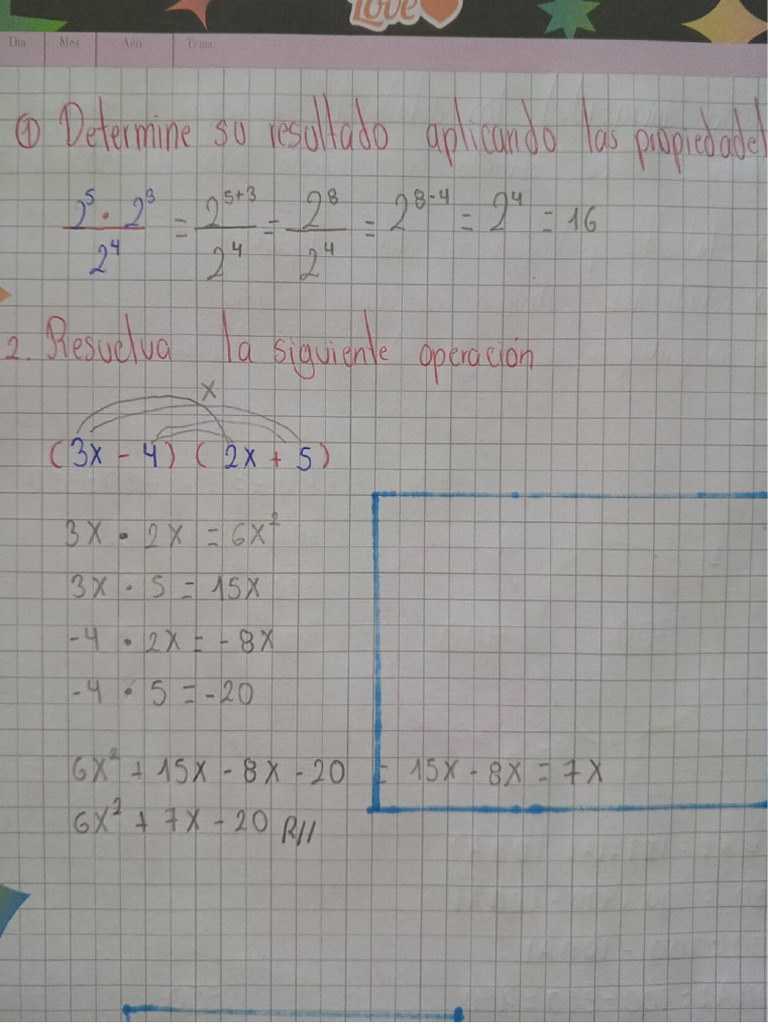 Love
Día Mes Año Tema:
① Determine su resultado aplicando las propiedades
2⁵ · 2³ / 2⁴ = 2⁵⁺³ / 2⁴ = 2⁸ / 2⁴ = 2⁸⁻⁴ = 2⁴ = 16
2. Resuelva la siguiente operación
x
(3x - 4) (2x + 5)
3x · 2x = 6x²
3x · 5 = 15x
-4 · 2x = -8x
-4 · 5 = -20
6x² + 15x - 8x - 20 = 15x - 8x = 7x
6x² + 7x - 20 R//